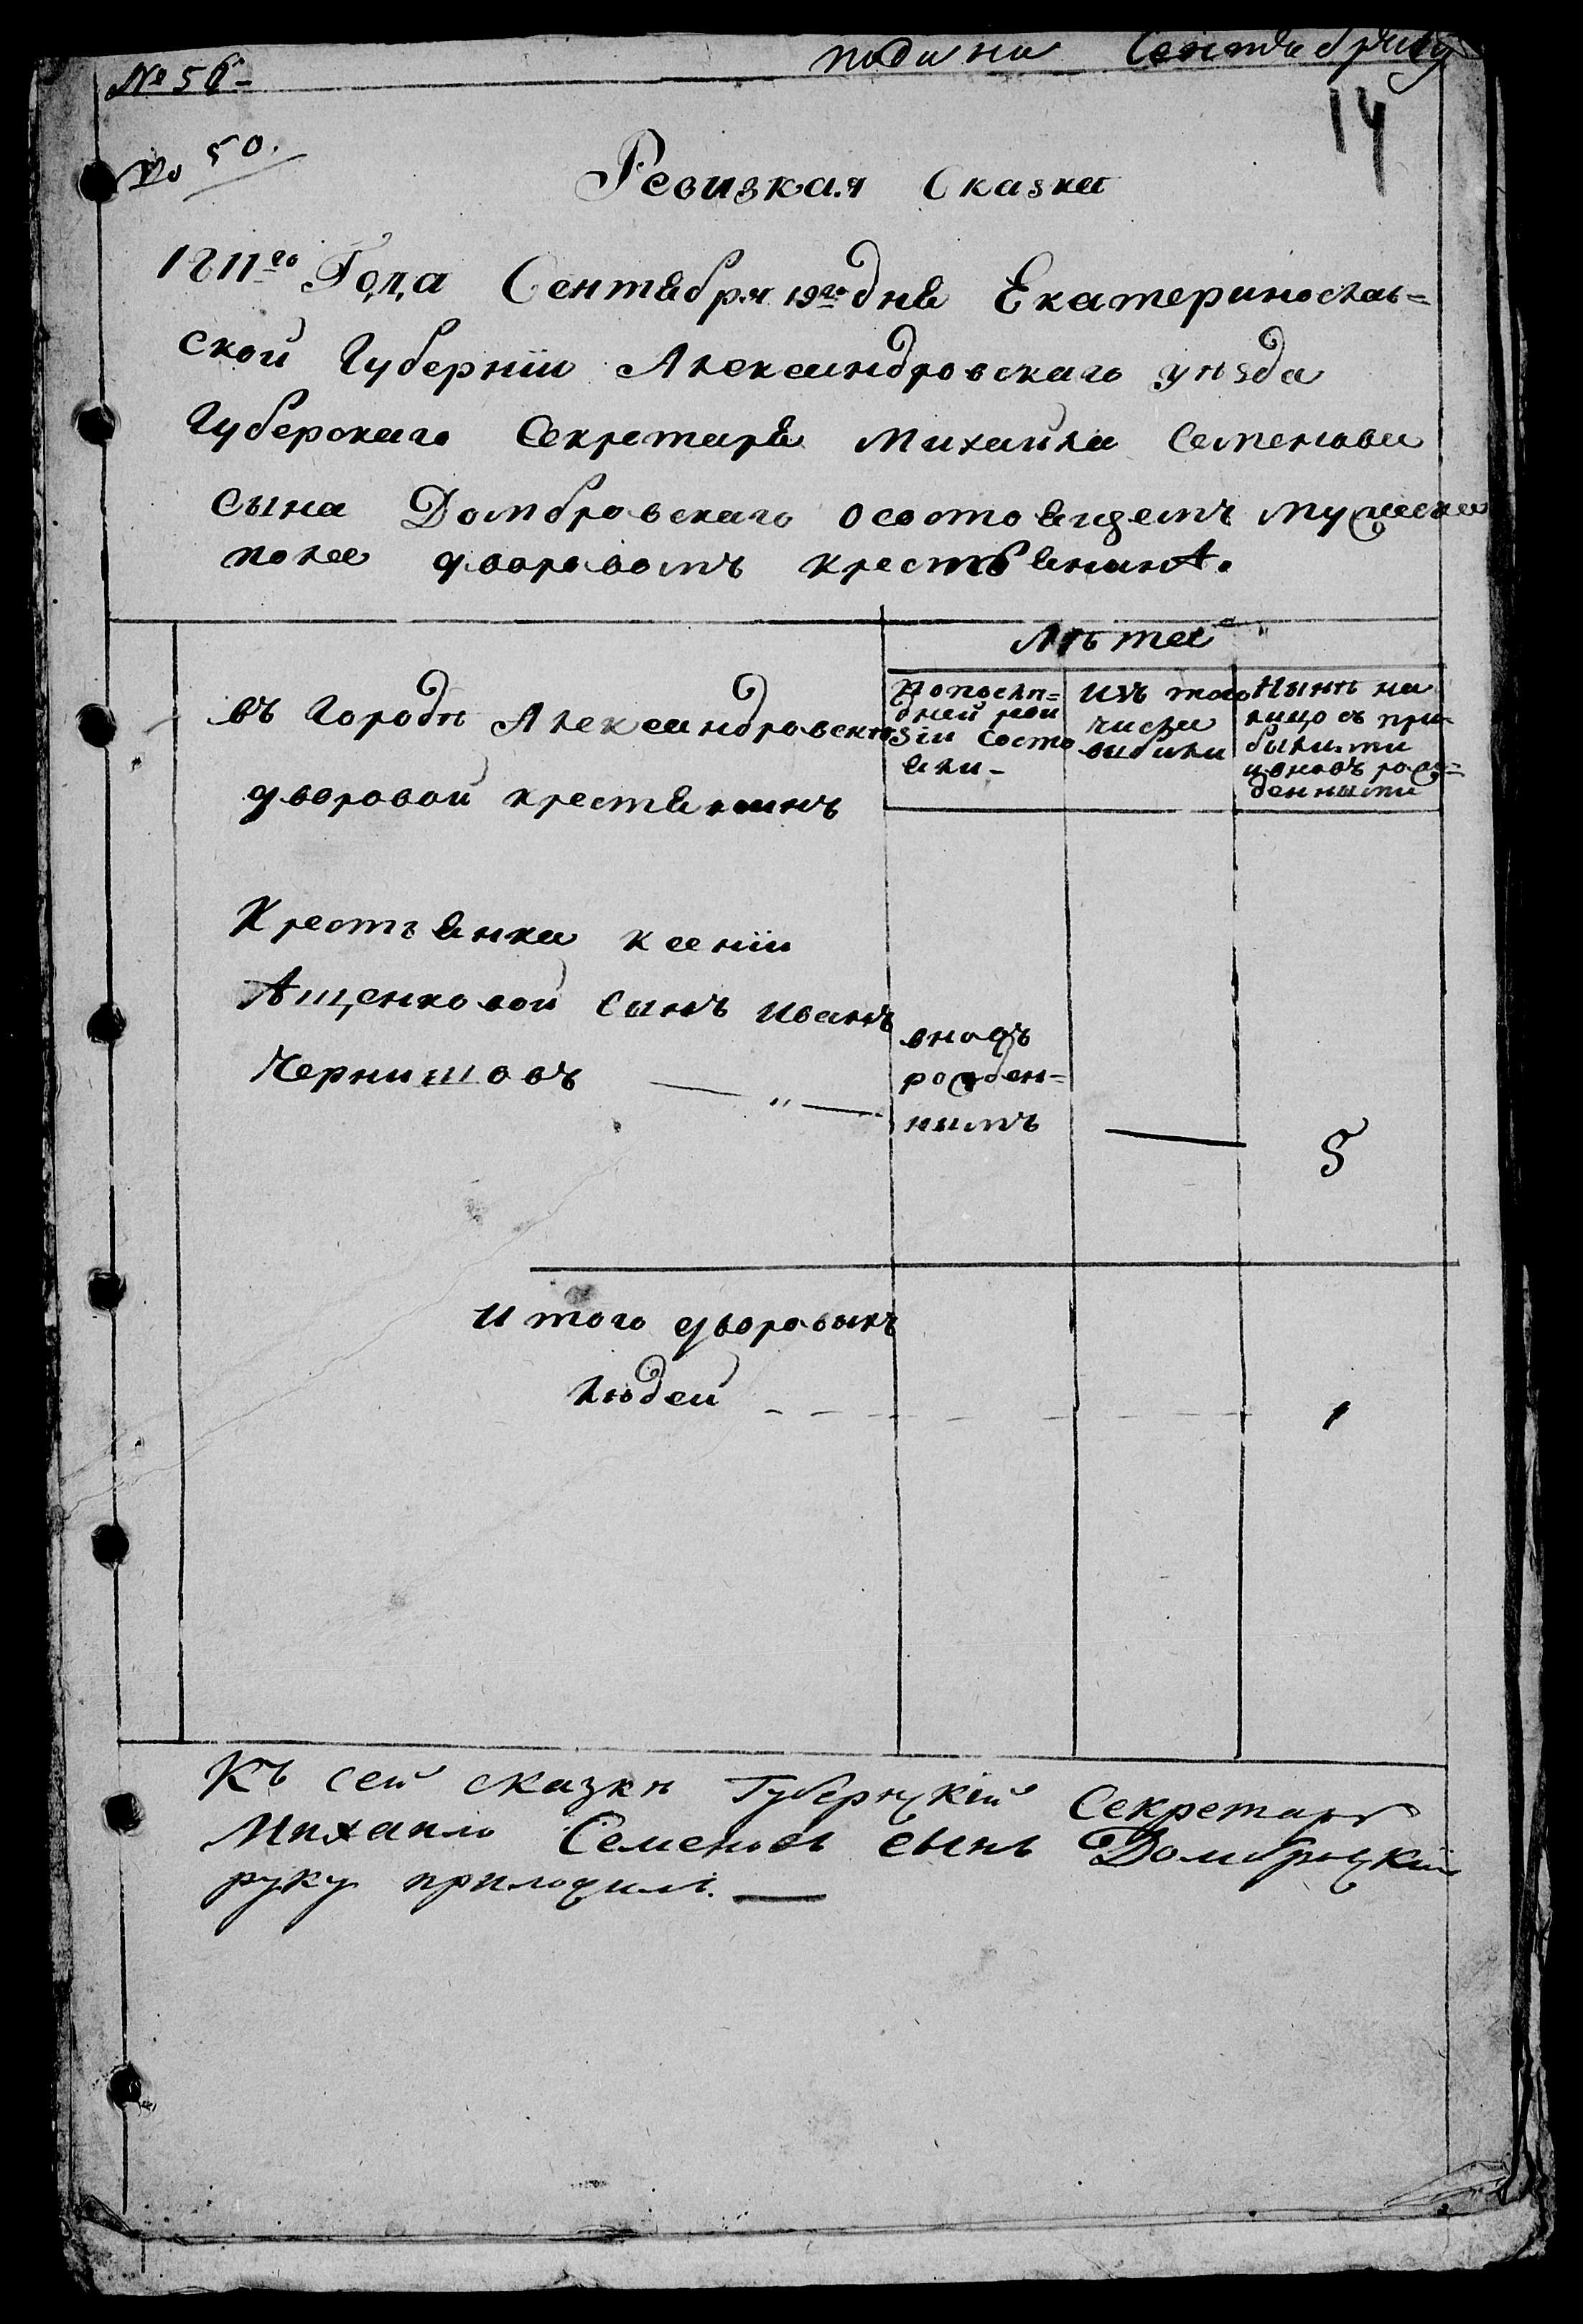 подана Сентября
№ 56
14
№ 50.
Ревизкая Сказка
1811го Года Сентября 19го дня Екатеринослав=
ской Губернїи Александровскаго уѣзда
Губерскаго Секретаря Михайла Семенова
сына Домбровскаго осостоящемъ мужеска
пола дворовомъ крестьянинѣ.
Лѣта
Попослѣ=
дней реви
зїи состо
яли-
изъ того
числа
выбили
Нынѣ на
лицо съ при
былыми
и вновь рож=
денными
въ городѣ Александровскѣ
дворовой крестянинъ
Крестьянка ксенїи
Ященковой сынъ иванъ
Чернишовъ — " —
вновь
рожден=
нымъ
—
5
итого дворовыхъ
людей
1
Къ сей сказкѣ Губернскїй Секретарь
Михаило Семеновъ сынъ Домбровскїй
руку приложилъ. —